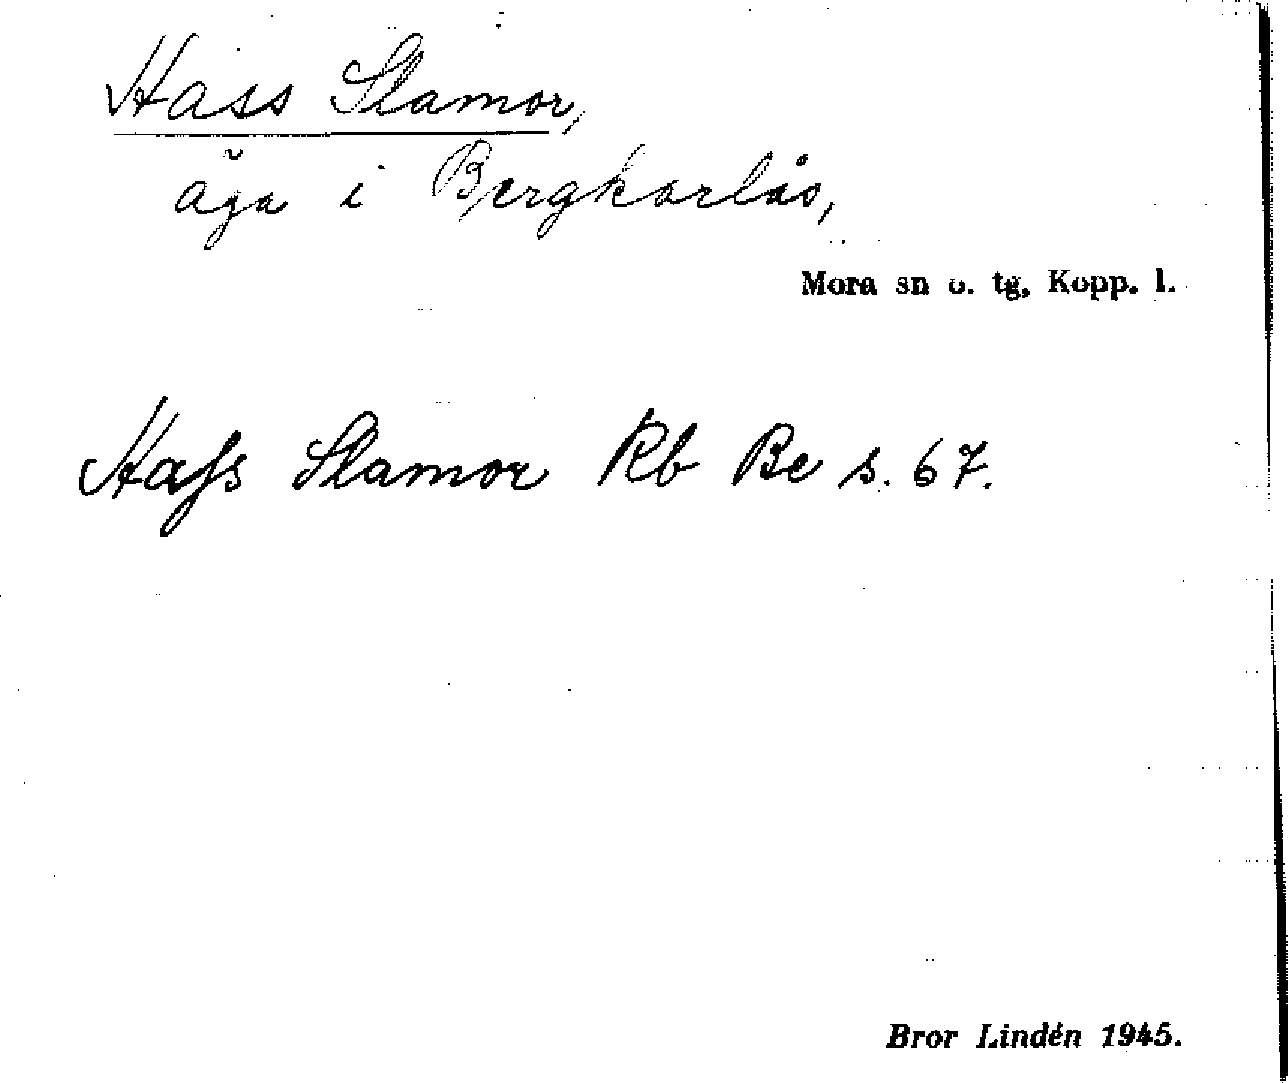 Hass Slamor,
äga i Bergkarlås,
Mora sn o. tg, Kopp. l.
Hafs Slamor Rb Be s. 67.
Bror Lindén 1945.